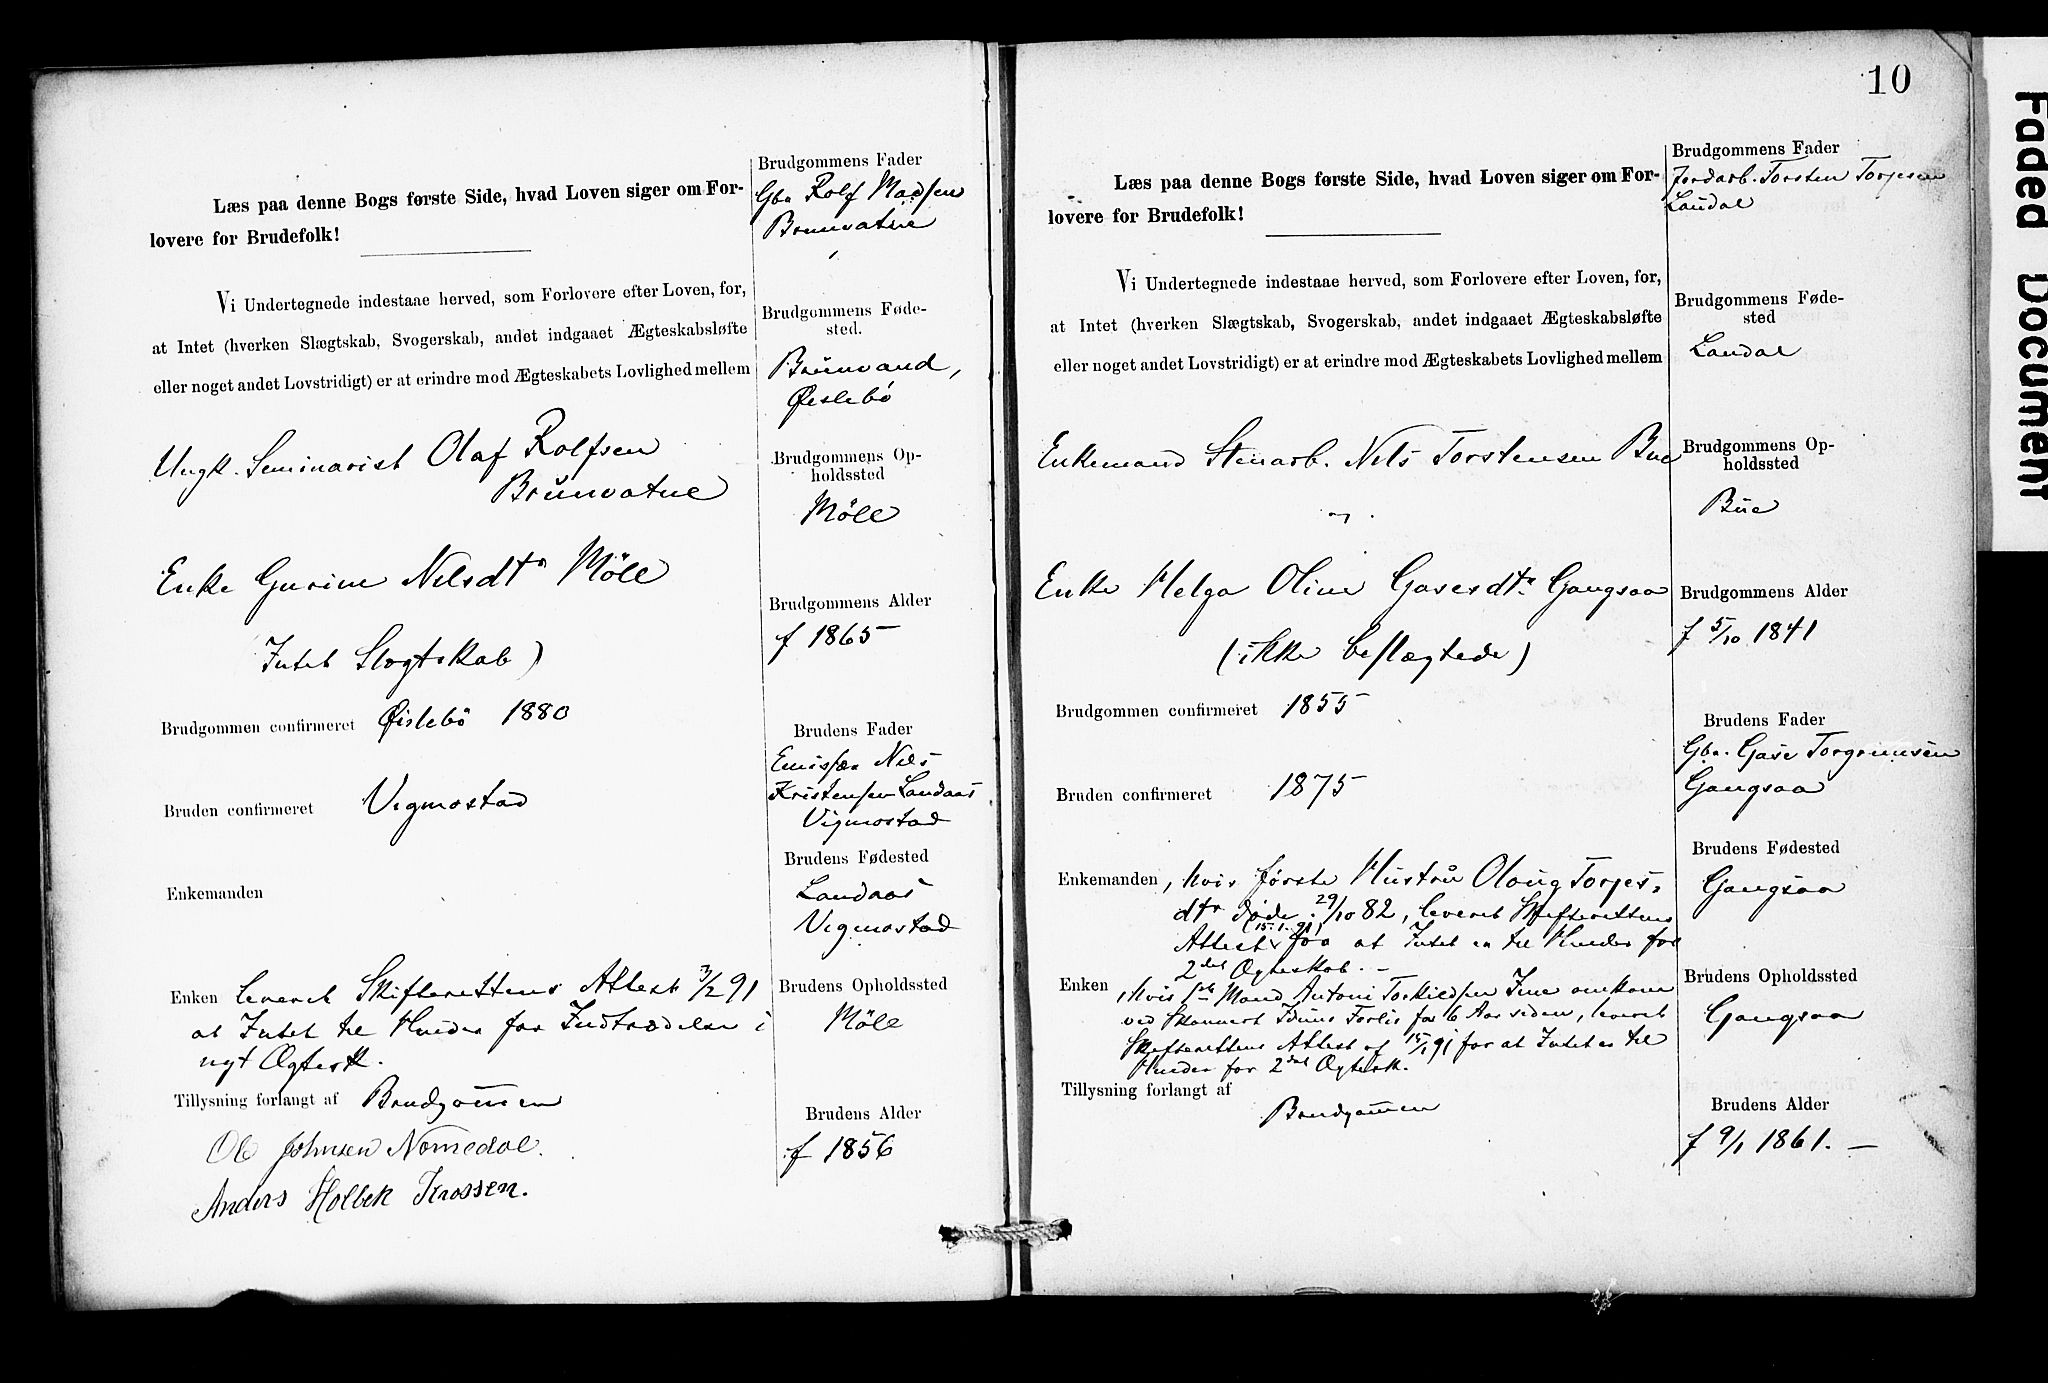 Læs paa denne Bogs første Side, hvad Loven siger om For-
lovere for Brudefolk!
Vi Undertegnede indestaae herved, som Forlovere efter Loven, for,
at Intet (hverken Slægtskab, Svogerskab, andet indgaaet Ægteskabsløfte
eller noget andet Lovstridigt) er at erindre mod Ægteskabets Lovlighed mellem
Ungk. Seminarist Olaf Rolfsen
Brunvatne
Enke Gurine Nilsdtr Möll
Intet Slægtskab)
Brudgommen confirmeret Øislebö 1880
Bruden confirmeret Vigmostad
Enkemanden
Enken leveret Skifterettens Attest 3/2 91
at Intet til Hinder for Indtrædelse i
nyt Ægtesk.
Tillysning forlangt af Brudgommen
Ole Johnsen Nomedal.
Anders Holbek Krossen.
Brudgommens Fader
Gbr Rolf Madsen
Brunvatne
Brudgommens Føde-
sted.
Brunvand,
Øislebö
Brudgommens Op-
holdssted
Möll
Brudgommens Alder
f 1865
Brudens Fader
Emissær Nils
Kristensen Landaas
Vigmostad
Brudens Fødested
Landaas
Vigmostad
Brudens Opholdssted
Möll
Brudens Alder
f 1856
10
Læs paa denne Bogs første Side, hvad Loven siger om For-
lovere for Brudefolk!
Vi Undertegnede indestaae herved, som Forlovere efter Loven, for,
at Intet (hverken Slægtskab, Svogerskab, andet indgaaet Ægteskabsløfte
eller noget andet Lovstridigt) er at erindre mod Ægteskabets Lovlighed mellem
Enkemand Stenarb. Nils Torstensen Bue
og
Enke Helga Oline Gasesdtr. Gangsaa
(ikke beslægtede)
Brudgommen confirmeret 1855
Bruden confirmeret 1875
Enkemanden, hvis første Hustru Olaug Torjes-
dtr døde 29/10 82, leveret Skifterettens
Attest (15.1.91) for at Intet er til Hinder for
2det Ægteskab. –
Enken, hvis 1ste Mand Antoni Torkildsen Ime omkom
ved Skonnert Iduns Forlis for 6 Aar siden, leveret
Skifterettens Attest af 15/1 91 for at Intet er til
Hinder for 2det Ægtesk.
Tillysning forlangt af
Brudgommen
Brudgommens Fader
Jordarb. Torsten Torjesen
Laudal
Brudgommens Føde-
sted
Laudal
Brudgommens Op-
holdssted
Bue
Brudgommens Alder
f 5/10 1841
Brudens Fader
Gbr. Gase Torgrimsen
Gangsaa
Brudens Fødested
Gangsaa
Brudens Opholdssted
Gangsaa
Brudens Alder
f 9/1 1861. –
Faded Document